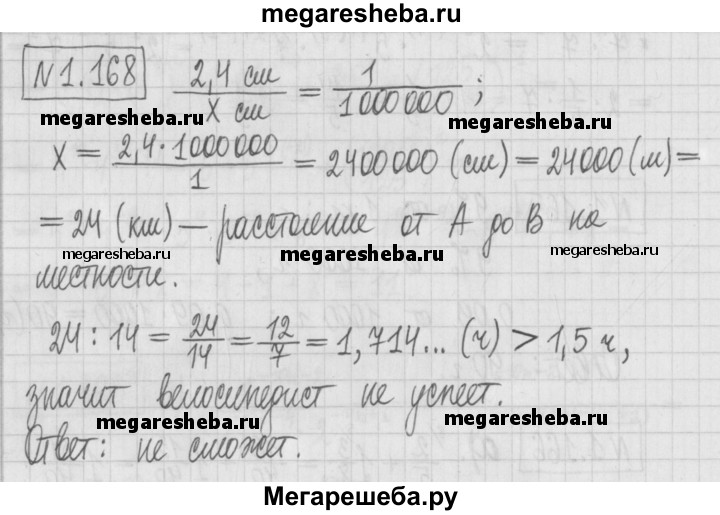 megaresheba.ru
N 1.168 2,4 см / x см = 1 / 1000000 ;
megaresheba.ru megaresheba.ru
x = 2,4 · 1000000 / 1 = 2400000 (см) = 24000 (м) =
= 24 (км) — расстояние от A до B на
megaresheba.ru megaresheba.ru
местности.
24 : 14 = 24/14 = 12/7 = 1,714... (ч) > 1,5 ч,
megaresheba.ru megaresheba.ru
значит велосиперист не успеет.
megaresheba.ru megaresheba.ru
Ответ: не сможет.
Мегарешеба.ру